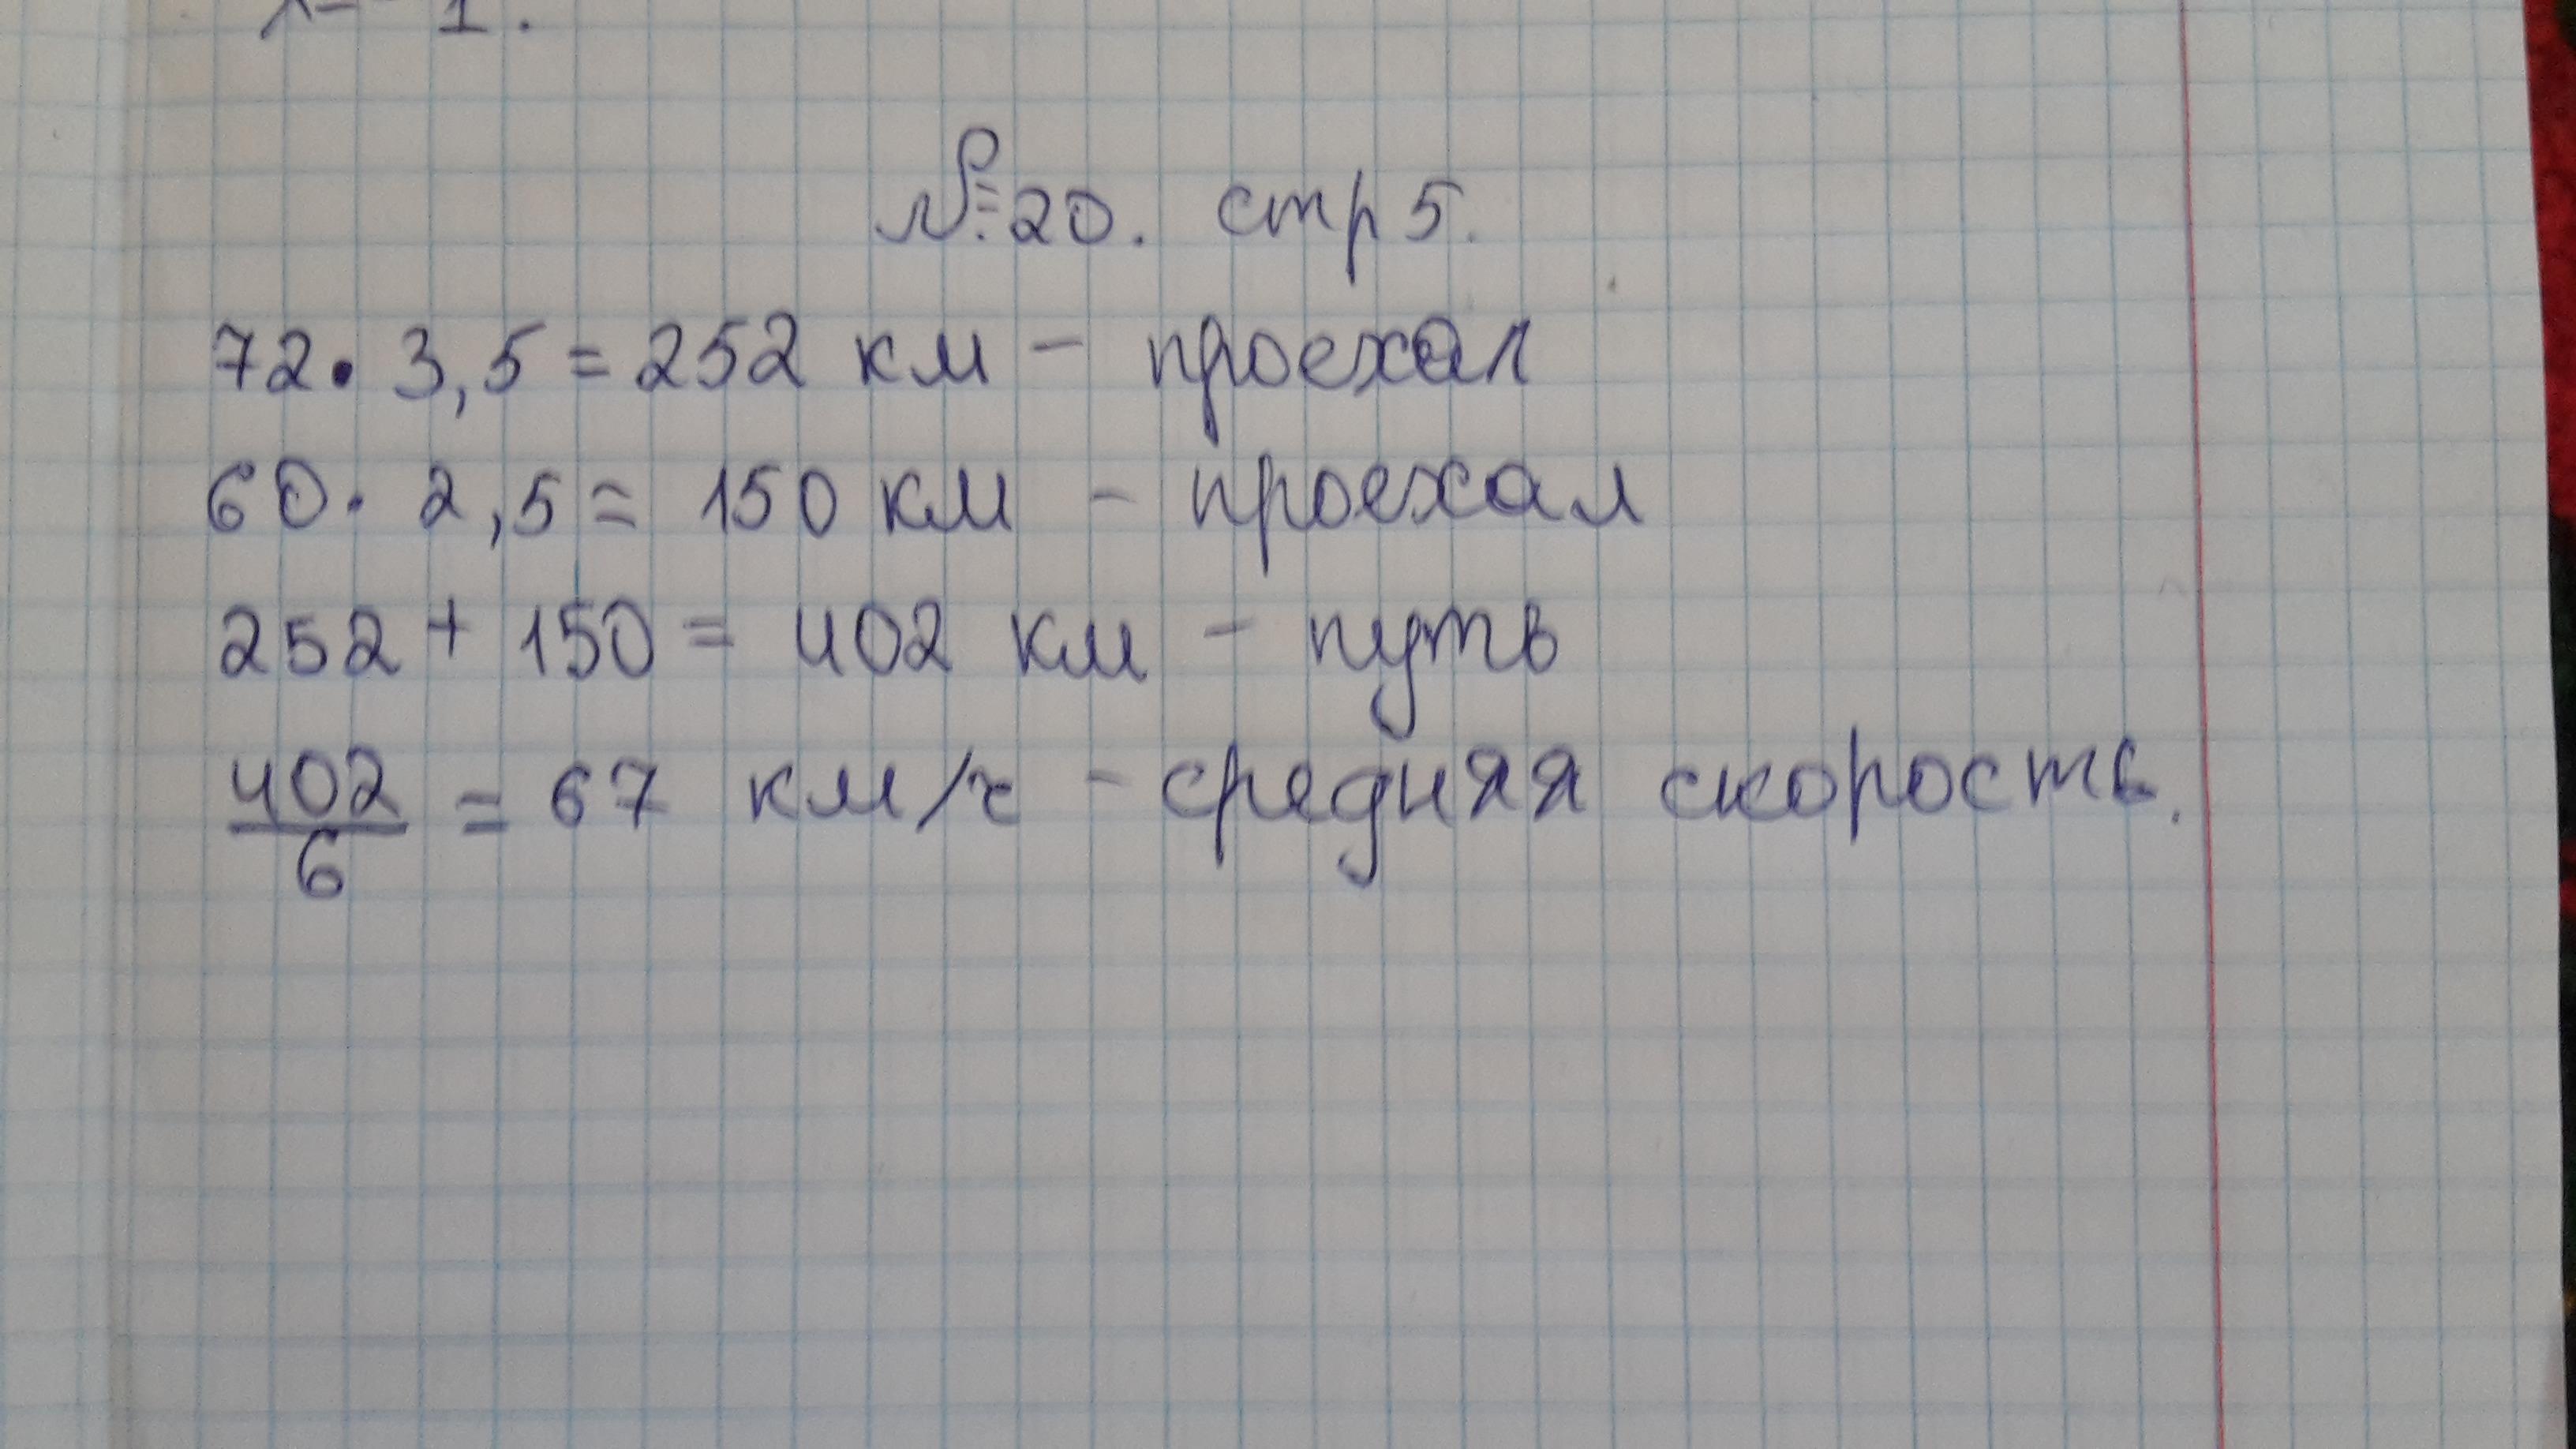 x = -1.
№ 20. стр 5.
72 · 3,5 = 252 км - проехал
60 · 2,5 = 150 км - проехал
252 + 150 = 402 км - путь
402/6 = 67 км/ч - средняя скорость.